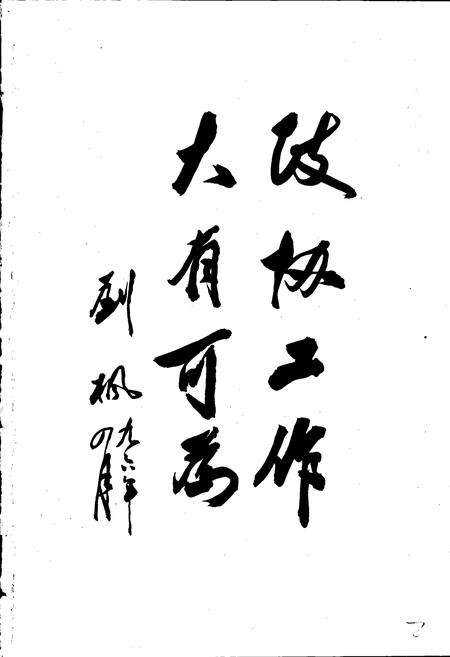 政协工作
大有可为
刘枫
九六年
四月